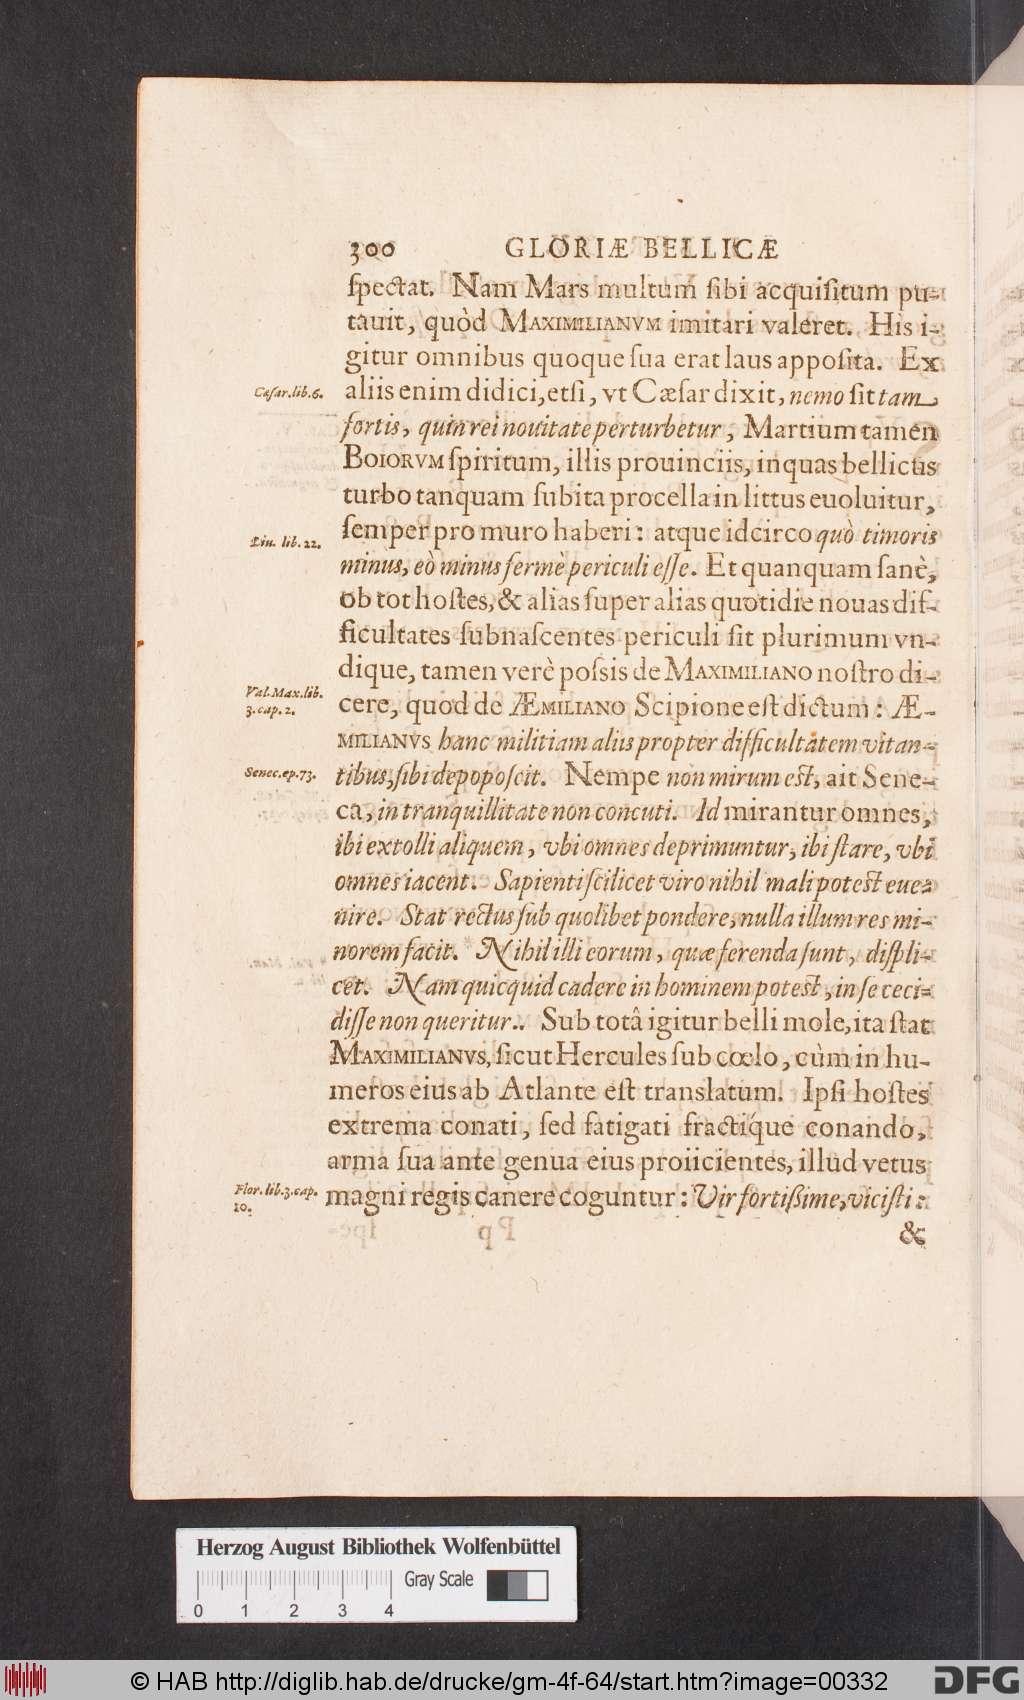 300 GLORIÆ BELLICÆ
ſpectat. Nam Mars multum ſibi acquiſitum pu-
tauit, quòd MAXIMILIANVM imitari valeret. His i-
gitur omnibus quoque ſua erat laus appoſita. Ex
Cæſar.lib.6.
aliis enim didici, etſi, vt Cæſar dixit, nemo ſit tam
fortis, quin rei nouitate perturbetur, Martium tamen
BOIORVM ſpiritum, illis prouinciis, in quas bellicus
turbo tanquam ſubita procella in littus euoluitur,
ſemper pro muro haberi: atque idcirco quò timoris
Liu. lib. 22.
minus, eò minus fermè periculi eſſe. Et quanquam ſanè,
ob tot hoſtes, & alias ſuper alias quotidie nouas dif-
ficultates ſubnaſcentes periculi ſit plurimum vn-
dique, tamen verè poſsis de MAXIMILIANO noſtro di-
Val.Max.lib.
3.cap.2.
cere, quod de ÆMILIANO Scipione eſt dictum: Æ-
MILIANVS hanc militiam aliis propter difficultatem vitan-
Senec.ep.73.
tibus, ſibi depopoſcit. Nempe non mirum est, ait Sene-
ca, in tranquillitate non concuti. Id mirantur omnes,
ibi extolli aliquem, vbi omnes deprimuntur, ibi ſtare, vbi
omnes iacent. Sapienti ſcilicet viro nihil mali potest eue-
nire. Stat rectus ſub quolibet pondere, nulla illum res mi-
norem facit. Nihil illi eorum, quæ ferenda ſunt, diſpli-
cet. Nam quicquid cadere in hominem potest, in ſe ceci-
diſſe non queritur.. Sub totâ igitur belli mole, ita ſtat
MAXIMILIANVS, ſicut Hercules ſub cœlo, cùm in hu-
meros eius ab Atlante eſt translatum. Ipſi hoſtes
extrema conati, ſed fatigati fractíque conando,
arma ſua ante genua eius proiicientes, illud vetus
Flor.lib.3.cap.
10.
magni regis canere coguntur: Vir fortißime, viciſti:
&
Herzog August Bibliothek Wolfenbüttel
Gray Scale
0 1 2 3 4
© HAB http://diglib.hab.de/drucke/gm-4f-64/start.htm?image=00332
DFG